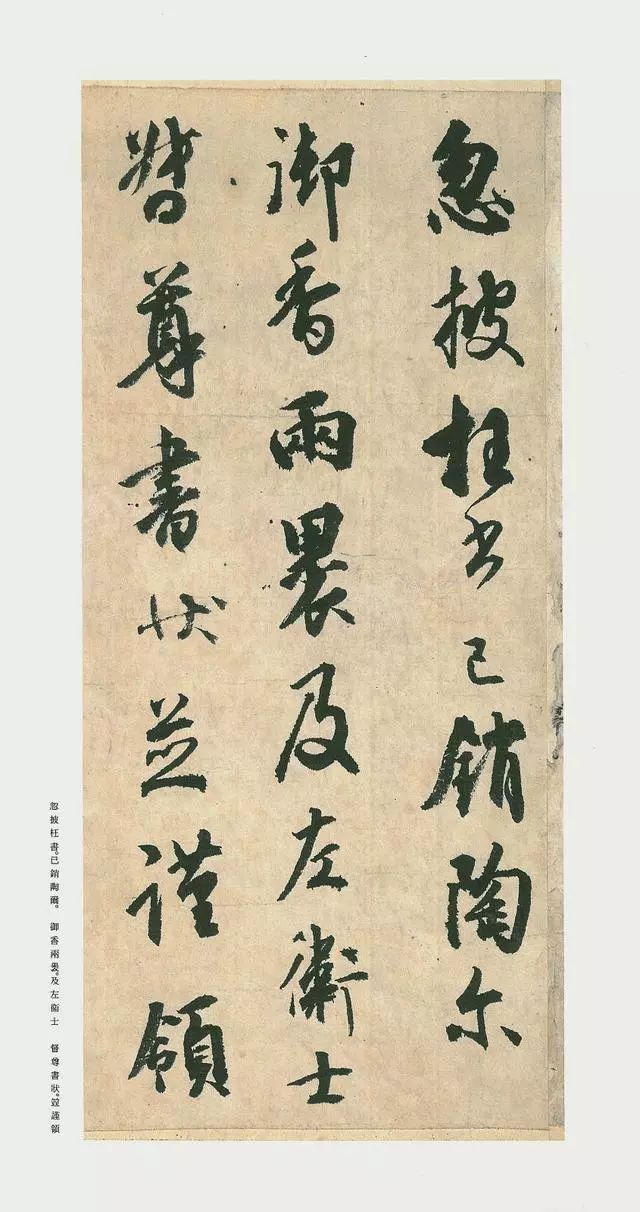 忽披枉书已销陶尔
御香兩褁及左衛士
督尊書狀並謹領
忽披枉書。已銷陶爾。 御香兩褁。及左衛士 督尊書狀。竝謹領